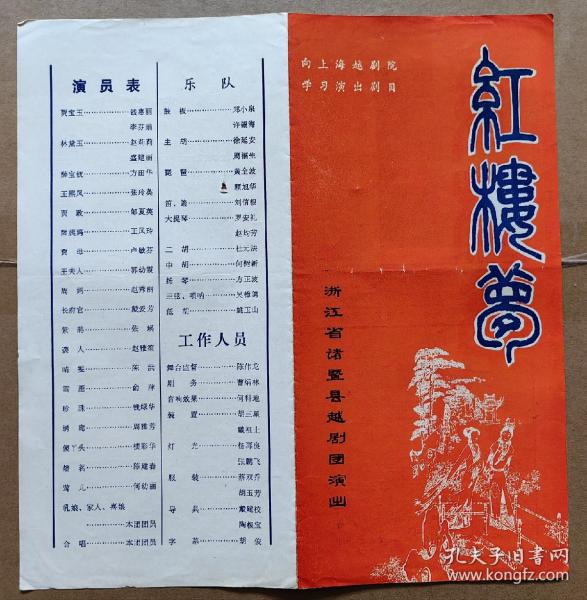 演员表
贾宝玉………钱惠丽
李芬娟
林黛玉………赵莉莉
盛建丽
薛宝钗………方田华
王熙凤………张玲美
贾 政………邹夏英
薛姨妈………王凤玲
贾 母………卢敏芬
王夫人………郭幼霞
周 妈………赵秀丽
长府官………戴爱芳
紫 鹃………张 瑛
袭 人………赵雅波
晴 雯………陈
雪 雁………俞 萍
珍 珠………钱绿华
琥 珀………周雅芳
傻丫头………楼彩华
焙 茗………陈建春
莺 儿………何幼丽
乳娘、家人、喜娘
………本团团员
合 唱………本团团员
乐 队
鼓 板………邓小泉
许疆海
主 胡………徐延安
周振庆
琵 琶………黄全波
顾旭华
笛、跪………刘信根
大提琴………罗安礼
赵均芳
二 胡………杜元法
中 胡………何树新
扬 琴………方正波
三弦、唢呐………吴樟鸿
低 胡………姚玉山
工作人员
舞台监督………陈作龙
剧 务………曹炳林
音响效果………何特地
装 置………胡三星
戴祖土
灯 光………杨再良
张鹏飞
服 装………蔡双乔
胡玉芳
导 具………戴建校
陶板宝
字 幕………胡 俊
向上海越剧院
学习演出剧目
紅樓夢
浙江省诸暨县越剧团演出
孔夫子旧书网
www.kongfz.com